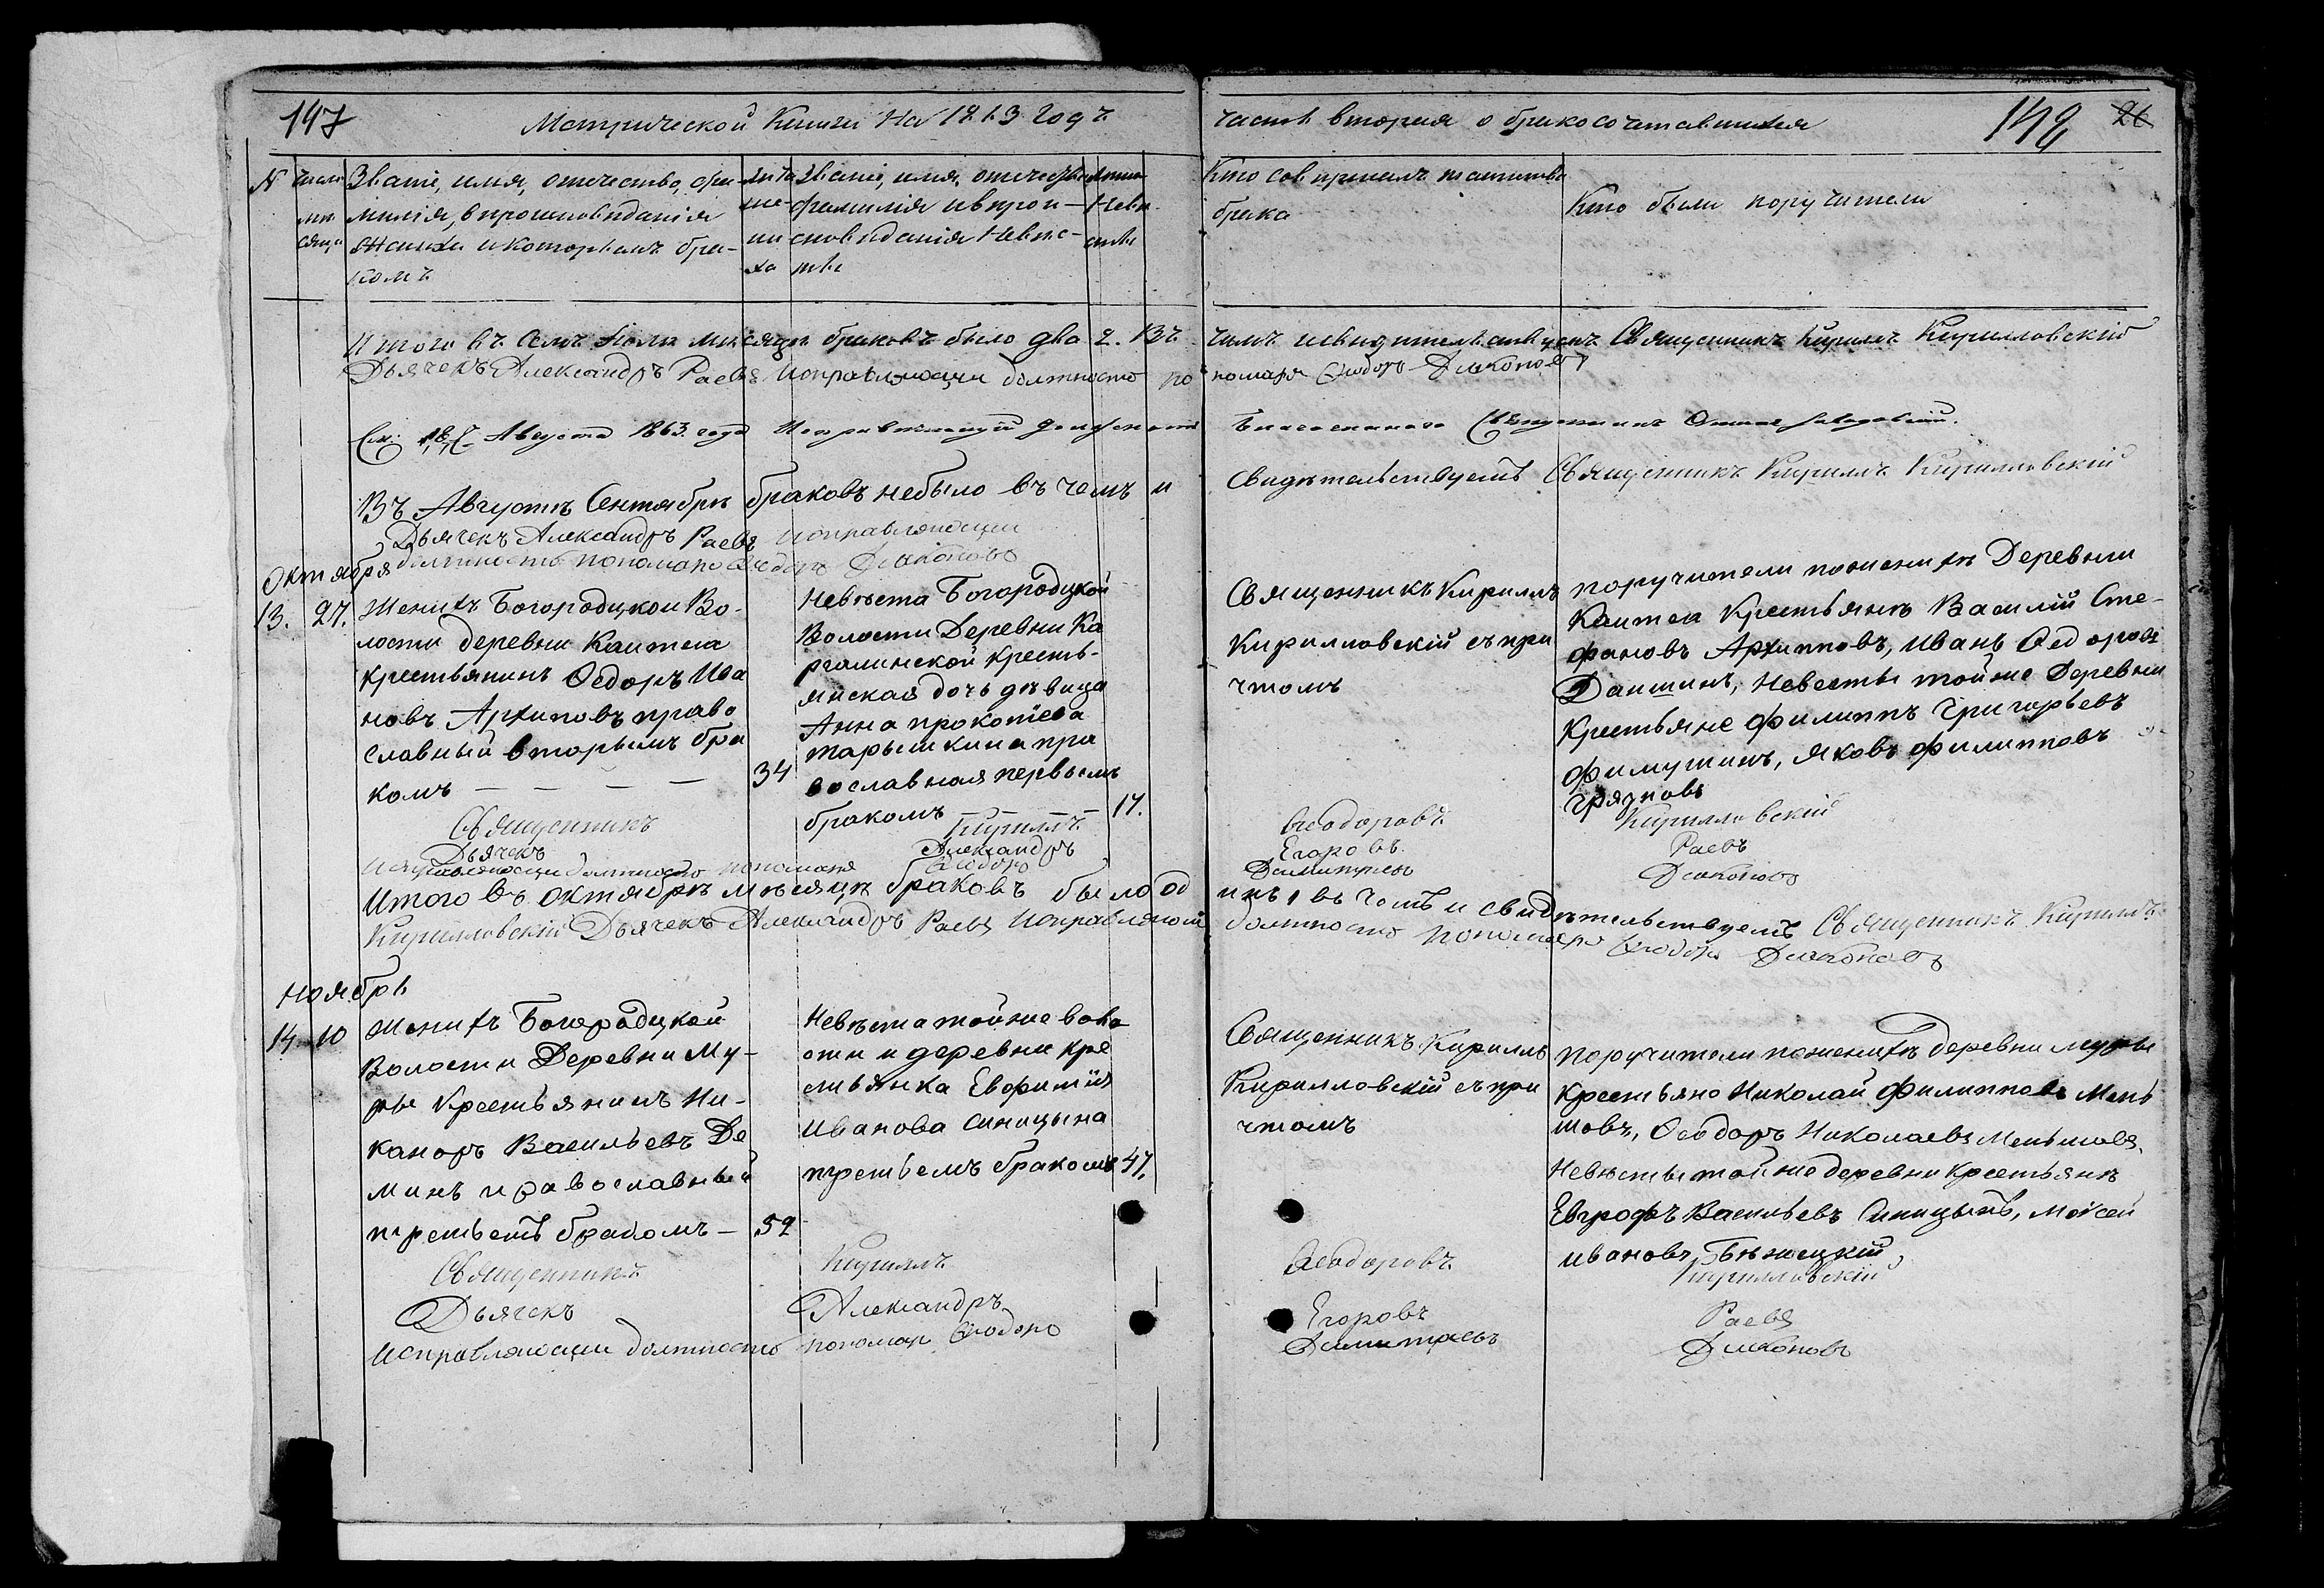 147
Метрической Книги На 1863 Годъ
часть вторая о бракосочетавшихся
148
26
N
Званіе, имя, отечество, фа-
милія, вероисповиданія
жениха и которымъ бра-
комъ
Званіе, имя, отечество
фамилія и верои-
сповиданія Невес-
ты
Кто совершалъ таинство
брака
Кто были поручители
Итого въ семъ Іюли месяце браковъ было два 2. Въ чемъ и свидетельствуетъ Священникъ Кириллъ Кирилловскій
Дьячекъ Александръ Раевъ Исправляющи должность пономаря Ѳеодоръ Дьяконовъ
Августа 1863 года Исправляющій должность Благочиннаго Священникъ
Въ Августе Сентябре браковъ небыло въ чемъ и свидѣтельствуетъ Священникъ Кириллъ Кирилловскій
Дьячекъ Александръ Раевъ исправляющи
должность пономаря Ѳеодоръ Дьяконовъ
Октября
13. 27. Женихъ Богородцкои Во-
лости деревни Каитела
крестьянинъ Ѳедоръ Ива
новъ Архиповъ право
славный вторымъ бра
комъ — — — —
34
Невѣста Богородцкой
Волости Деревни Ка
ргалинской кресть-
янская дочь дѣвица
Анна прокопіева
тарышкина пра
вославная первымъ
бракомъ
17.
Священникъ Кириллъ
Кирилловскій съ при
чтомъ
поручители поженихѣ Деревни
Каител Крестьянѣ Василій Сте-
фановъ Архипповъ, Иванъ Ѳедоровъ
Даишинъ, Невесты тойже Деревни
Крестьяне Филиппъ Григорьевъ
Филушинъ, Яковъ Филипповъ
Грязновъ
Священникъ Кириллъ Ѳеодоровъ Кирилловскій
Дьячекъ Александръ Егоровъ Раевъ
исправляющи должность пономаря Ѳеодоръ Димитріевъ Дьяконовъ
Итого въ октябрѣ мѣсяцѣ браковъ было одинъ 1 въ чомъ и свидѣтельствуетъ Священникъ Кириллъ
Кирилловскій Дьячекъ Александръ Раевъ Исправляющи должность пономаря Ѳеодоръ Дьяконовъ
Ноябрь
14 10 Женихъ Богородцкой
Волости Деревни Му-
ры Крестьянинъ Ни-
каноръ Васильевъ Де
минъ православный
третьемъ бракомъ —
52
Невѣста тойже воло
сти и деревни кре
стьянка Евфимія
Иванова Синицына
третьемъ бракомъ
47.
Священникъ Кириллъ
Кирилловскій съ при
чтомъ
Поручители поженихѣ деревни Муры
Крестьяне Николай Филипповъ Мень
шовъ, Ѳеодоръ Николаевъ Меньшовъ.
Невѣсты тойже деревни Крестьянѣ
Евграфъ Васильевъ Синицынъ, Моисей
Ивановъ Бѣжецкій
Священникъ Кириллъ Ѳеодоровъ Кирилловскій
Дьячекъ Александръ Егоровъ Раевъ
Исправляющи должность пономар Ѳеодоръ Димитріевъ Дьяконовъ